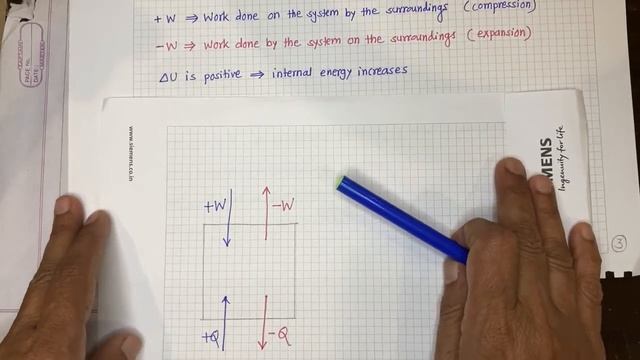 +W ⇒ Work done on the system by the surroundings (compression)
-W ⇒ Work done by the system on the surroundings (expansion)
ΔU is positive ⇒ internal energy increases
www.siemens.co.in
MENS
Ingenuity for life
+W
-W
+Q
-Q
3
PAGE No.
DATE